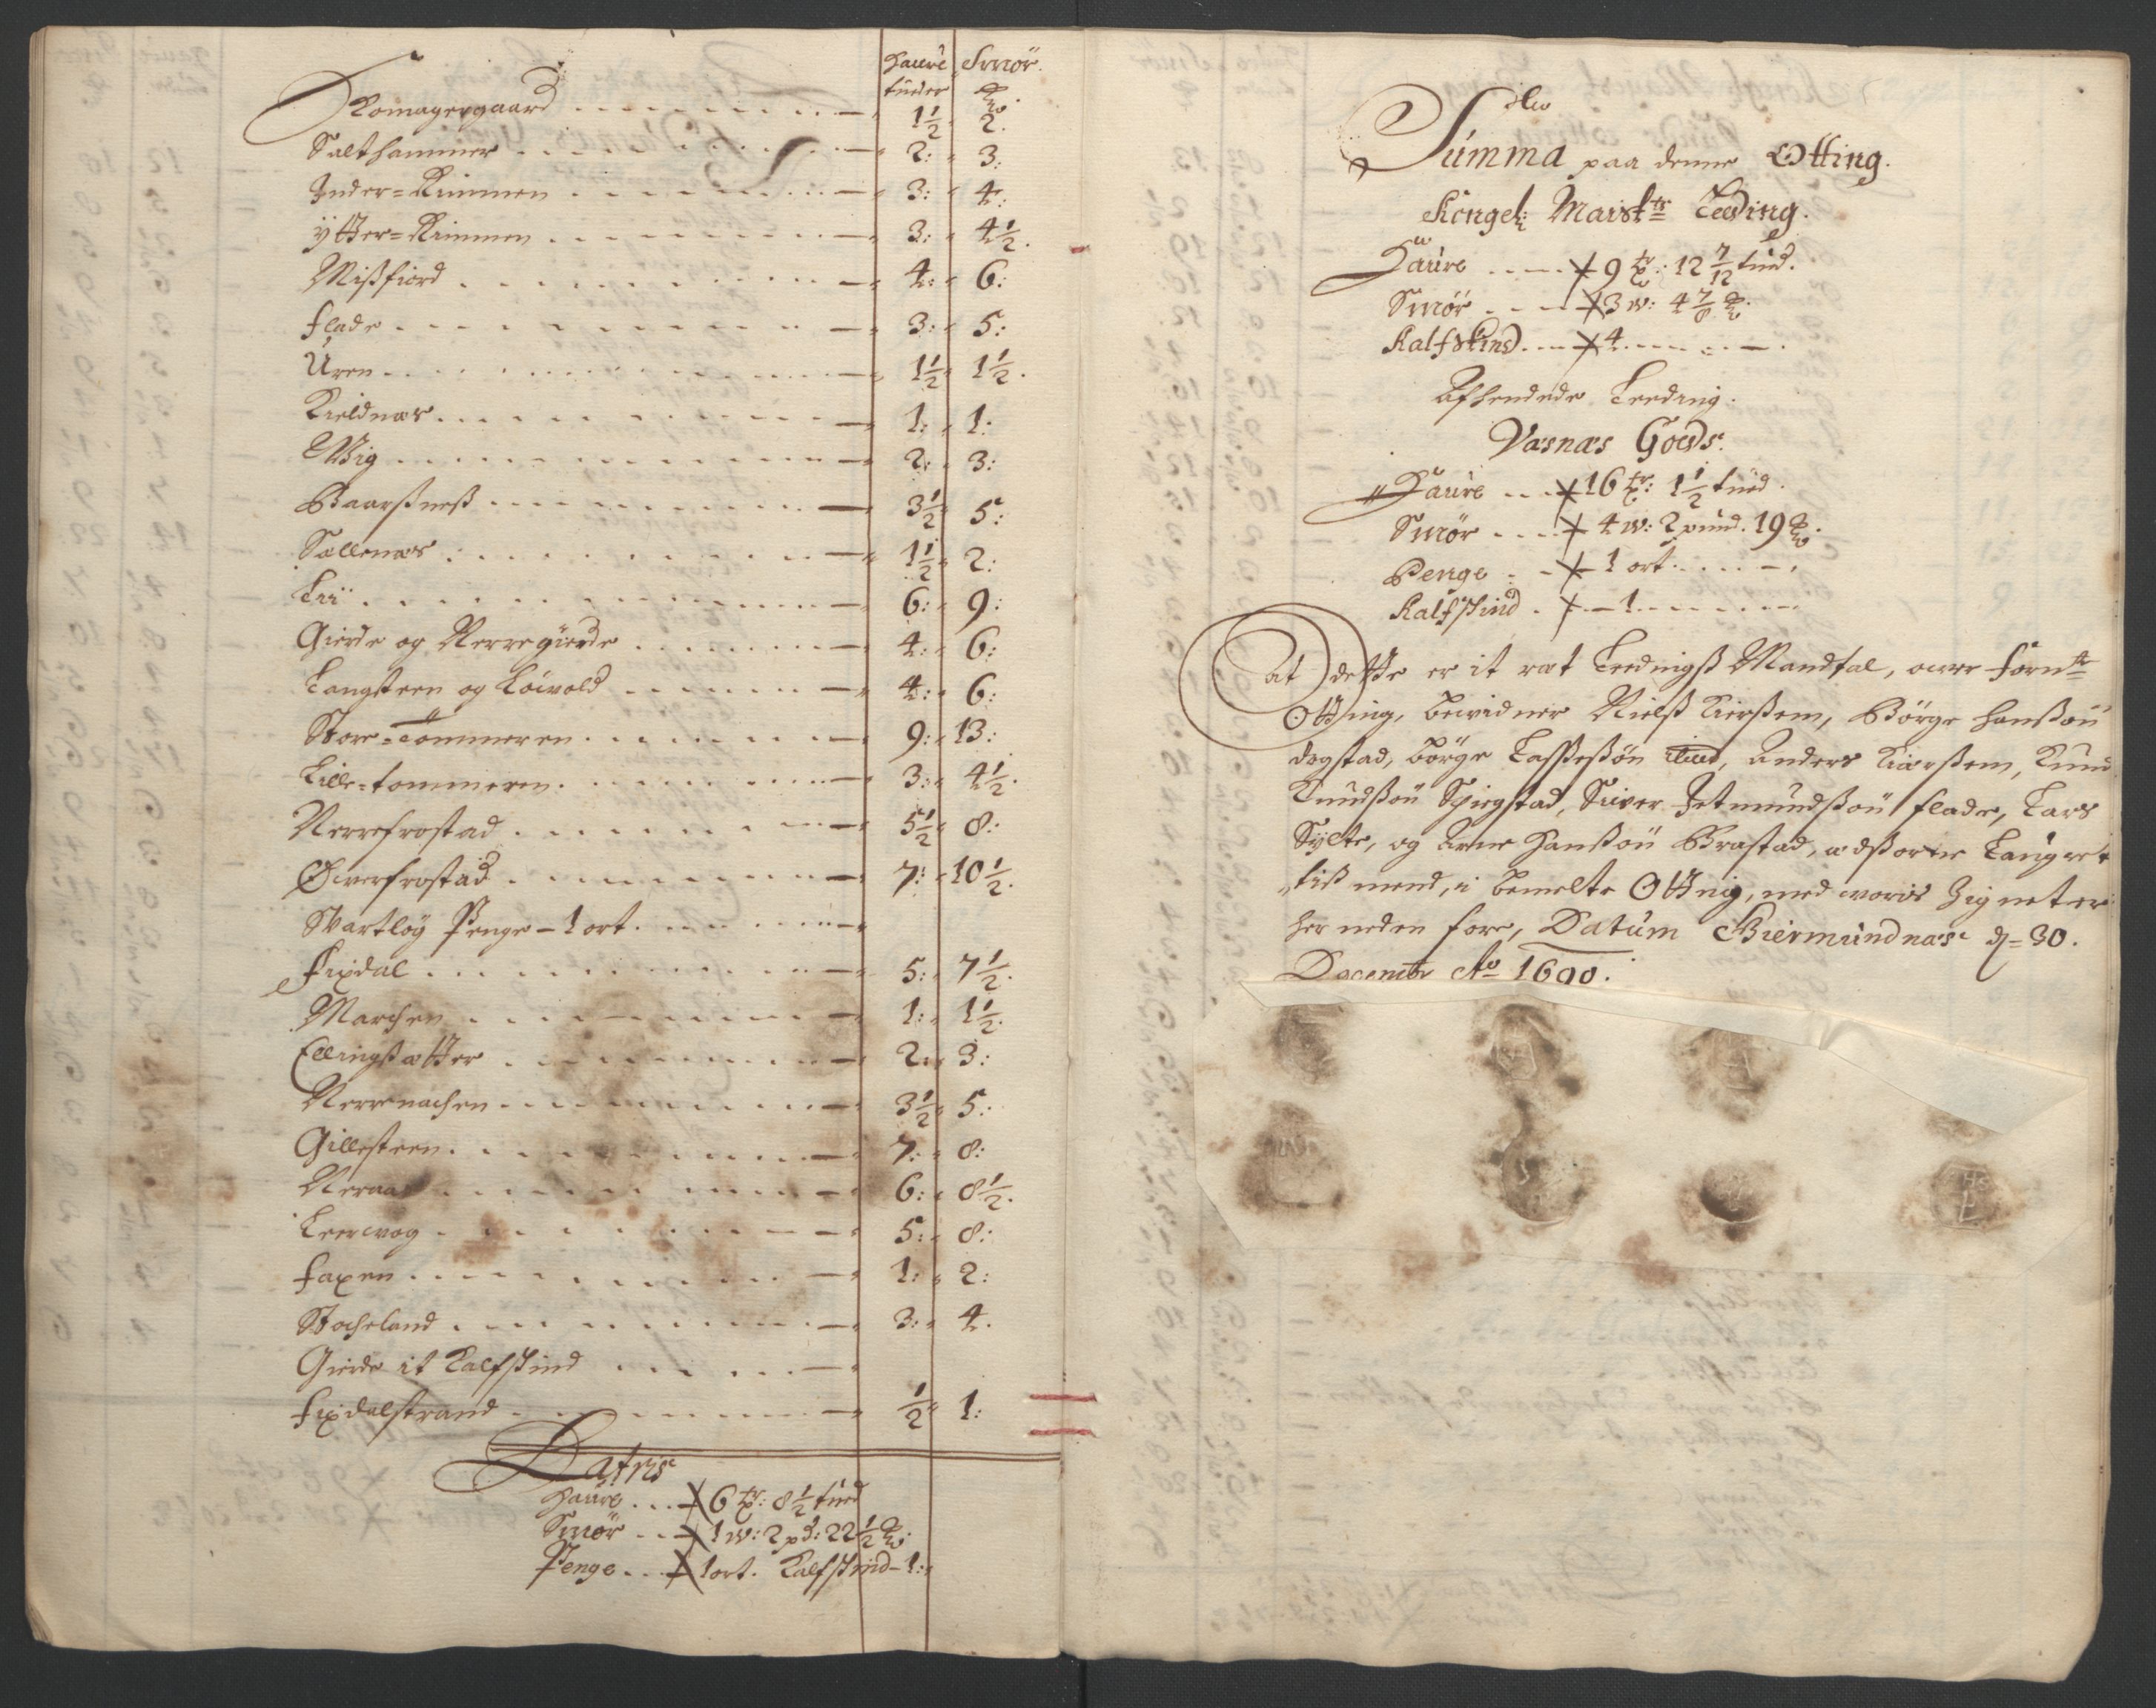 Haure Smör.
tunder ℔.
Romagergaard 1½ 2.
Salthammer 2: 3:
Inder-Rimmen 3: 4:
ytter-Rimmen 3: 4½.
Mißfiord 4: 6:
Flade 3: 5:
Uren 1½ 1½.
Kieldnæs 1: 1:
Wiig 2: 3:
Baarßneß 3½ 5:
Sællenæs 1½ 2:
Lii 6: 9:
Gierde og Nerregierde 4: 6:
Langsteen og Löivold 4: 6:
Store-Tommeren 9: 13:
Lille-tommeren 3: 4½.
Nerrefrostad 5½ 8:
Øverfrostad 7: 10½.
Svartlöy Penge - 1 ort.
Fixdal 5: 7½.
Marchen 1: 1½.
Ellingßætter 2: 3:
Nerrenachen 3½ 5:
Gillesteen 7: 8:
Neraas 6: 8½.
Leervog 5: 8:
Faxen 1: 2:
Stocheland 3: 4.
Gierde it Kalfskind
Fixdalstrand ½ 1:
Latris
Haure 6 tr: 8½ tund
Smör 1 w: 2 pd: 22½ ℔:
Penge 1 ort. Kalfskind - 1:
Summa paa denne Otting.
Kongel: Maists Leeding.
Haure 9 tr: 12 7/12 tund.
Smör 3 w: 4 7/8 ℔.
Kalfskind 4
Afhendede Leeding.
Vasnæs Goeds.
Haure 16 tr: 1½ tund.
Smör 4 w: 2 pund. 19 ℔.
Penge 1 ort
Kalfskind 1
At dette er it ræt Leedingß Mandtal, over Forne
Otting, bevidner Nielß Kierßem, Börge Hanßön
Dogstad, Börge Laßeßön, Anders Kierßem, Knud
Knudßön Spiegstad, Siver Jetmundßön Flade, Lars
Sylte, og Arne Hanßön Brastad, ædßorne Laugret
tiß mend, i bemelte Otting, med voris Zigneter
her neden fore, Datum Biermundnæs d= 30.
Decembr Ao 1690.